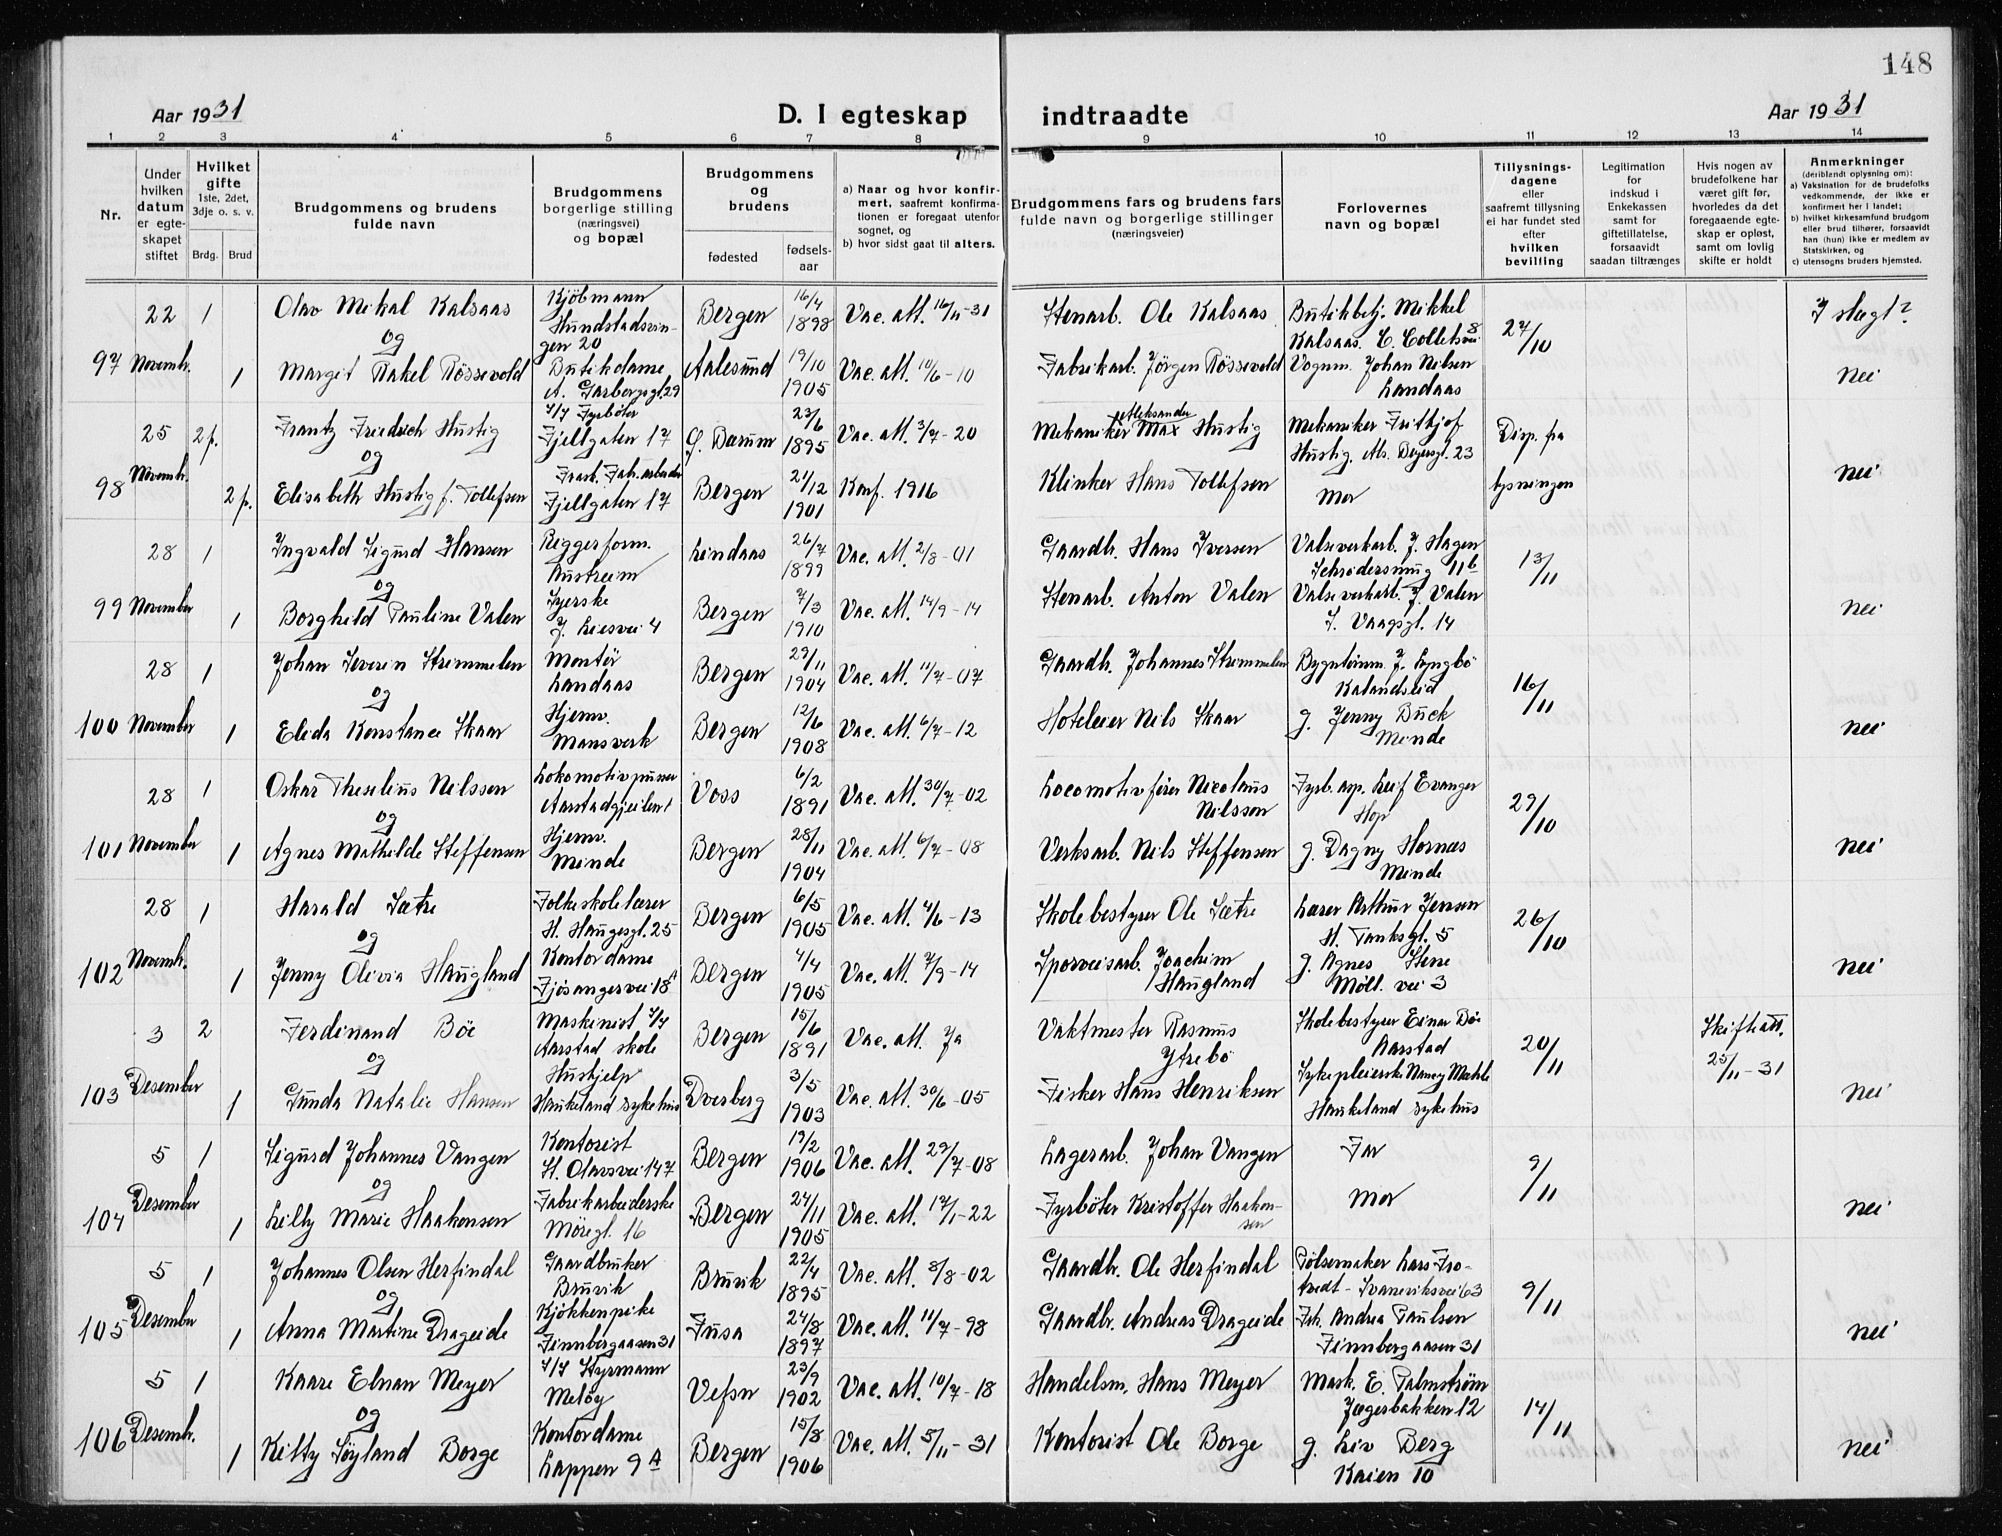 148
Aar 1931
D. I egteskap indtraadte
Aar 1931
1 2 3 4 5 6 7 8 9 10 11 12 13 14
Nr.
Under hvilken datum er egteskapet stiftet
Hvilket gifte 1ste, 2det, 3dje o. s. v.
Brdg. Brud
Brudgommens og brudens fulde navn
Brudgommens borgerlige stilling (næringsvei) og bopæl
Brudgommens og brudens
fødested
fødselsaar
a) Naar og hvor konfirmert, saafremt konfirmationen er foregaat utenfor sognet, og
b) hvor sidst gaat til alters.
Brudgommens fars og brudens fars fulde navn og borgerlige stillinger (næringsveier)
Forlovernes navn og bopæl
Tillysningsdagene eller saafremt tillysning ei har fundet sted efter hvilken bevilling
Legitimation for indskud i Enkekassen samt for giftetillatelse, forsaavidt saadan tiltrænges
Hvis nogen av brudefolkene har været gift før, hvorledes da det foregaaende egteskap er opløst, samt om lovlig skifte er holdt
Anmerkninger (deriblendt oplysning om):
a) Vaksination for de brudefolks vedkommende, der ikke er konfirmert her i landet;
b) hvilket kirkesamfund brudgom eller brud tilhører, forsaavidt han (hun) ikke er medlem av Statskirken, og
c) utensogns bruders hjemsted.
97 22 Novembr. 1 Olav Mikal Kalsaas Kjöbmann Hundstadsvingen 20 Bergen 16/4 1898 Vac. att. 16/11-31 Stenarb. Ole Kalsaas Butikbetj. Mikkel Kalsaas. C. Colletsvei 8 27/10 I slegt?
og
1 Margit Rakel Røssevold Butikdame A. Garborgsgt. 29 Aalesund 19/10 1905 Vac. att. 10/6-10 Fabrikarb. Jörgen Røssevold Vognm. Johan Nilsen Landaas nei
98 25 Novembr. 2 p. Frantz Friedrich Hustig S/S Fyrböter Fjellgaten 17 G. Darum 23/6 1895 Vac. att. 3/7-20 Mekaniker Max Aleksander Hustig Mekaniker Frithjof Hustig. Abs. Beyersgt. 23 Disp. fra lysningen
og
2 p. Elisabeth Hustig f. Tollefsen Frask. Fabr.arbeider Fjellgaten 17 Bergen 21/12 1901 Konf. 1916 Klinker Hans Tollefsen Mor nei
99 28 November 1 Ingvald Sigurd Hansen Riggerform. Austreim Lindaas 26/7 1899 Vac. att. 2/8-01 Gaardbr. Hans Iversen Valseverkarb. J. Hagen Schrödersmug 11 b 13/11
og
1 Borghild Pauline Valen Syerske J. Liesvei 4 Bergen 7/3 1910 Vac. att. 14/9-14 Stenarb. Anton Valen Valseverkarb. J. Valen J. Vaagsgt. 14 nei
100 28 November 1 Johan Severin Strømmelen Montör Landaas Bergen 29/11 1904 Vac. att. 11/7-07 Gaardb. Johannes Strømmelen Bygntömm. J. Lyngbö Kalandseid 16/11
og
1 Elida Konstance Skaar Hjemv. Mansverk Bergen 12/6 1908 Vac. att. 6/7-12 Hoteleier Nils Skaar g. Jenny Buck Minde nei
101 28 November 1 Oskar Theselius Nilssen Lokomotivpusser Aarstadgjeilen 1 Voss 6/2 1891 Vac. att. 30/7-02 Locomotivfører Nicolaus Nilsson Fyrb. asp. Leif Evanger Hop 29/10
og
1 Agnes Mathilde Steffensen Hjemv. Minde Bergen 28/11 1904 Vac. att. 6/7-08 Verksarb. Nils Steffensen g. Dagny Hornæs Minde nei
102 28 Novembr. 1 Harald Sætre Folkeskolelærer H. Haugesgt. 25 Bergen 6/5 1905 Vac. att. 4/6-13 Skolebestyrer Ole Sætre Lærer Arthur Jensen H. Tanksgt. 5 26/10
og
1 Jenny Olivia Haugland Kontordame Fjösangervei 18 A Bergen 4/4 1905 Vac. att. 7/9-14 Sporveisarb. Joachim Haugland g. Agnes Stene Möll. vei 3 nei
103 3 Desember 2 Ferdinand Böe Maskinist S/S Aarstad skole Bergen 15/6 1891 Vac. att. Ja Vaktmester Rasmus Ytrebö Skolebestyrer Einar Böe Aarstad 20/11 Skifteatt. 25/11-31
og
1 Gunda Natalie Hansen Hushjelp Haukeland sykehus Dverberg 3/5 1903 Vac. att. 30/6-05 Fisker Hans Henriksen Sykepleierske Nancy Mæhle Haukeland sykehus nei
104 5 Desember 1 Sigurd Johannes Vangen Kontorist St. Olavsvei 147 Bergen 19/2 1906 Vac. att. 29/7-08 Lagerarb. Johan Vangen Far 9/11
og
1 Lilly Marie Haakonsen Fabrikarbeiderske Möregt. 16 Bergen 24/11 1905 Vac. att. 17/1-22 Fyrböter Kristoffer Haakonsen Mor nei
105 5 Desember 1 Johannes Olsen Herfindal Gaardbruker Bruvik Bruvik 22/4 1895 Vac. att. 8/8-02 Gaardbr. Ole Herfindal Pölsemaker Lars Frotvedt - Svaneviksvei 63 9/11
og
1 Anna Martine Drageide Kjökkenpike Finnbergaasen 31 Fusa 24/8 1897 Vac. att. 11/7-98 Gaardbr. Andreas Drageide Frk. Andrea Paulsen Finnbergaasen 31 nei
106 5 Desembr. 1 Kaare Elnan Meyer S/S Styrmann Melöy Vefsn 23/9 1902 Vac. att. 10/7-18 Handelsm. Hans Meyer Mask. E. Palmström Jægerbakken 12 14/11
og
1 Kitty Söyland Borge Kontordame Lappen 9 A Bergen 15/8 1906 Vac. att. 5/11-31 Kontorist Ole Borge g. Liv Berg Kaien 10 nei